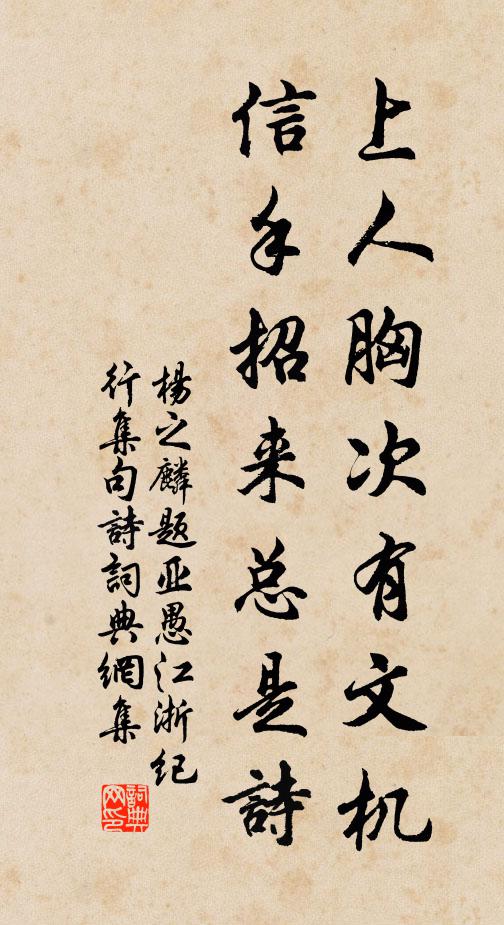 上人胸次有文机
信手招来总是詩
楊之麟题亚愚江浙纪
行集句詩詞典網集
詞典网印